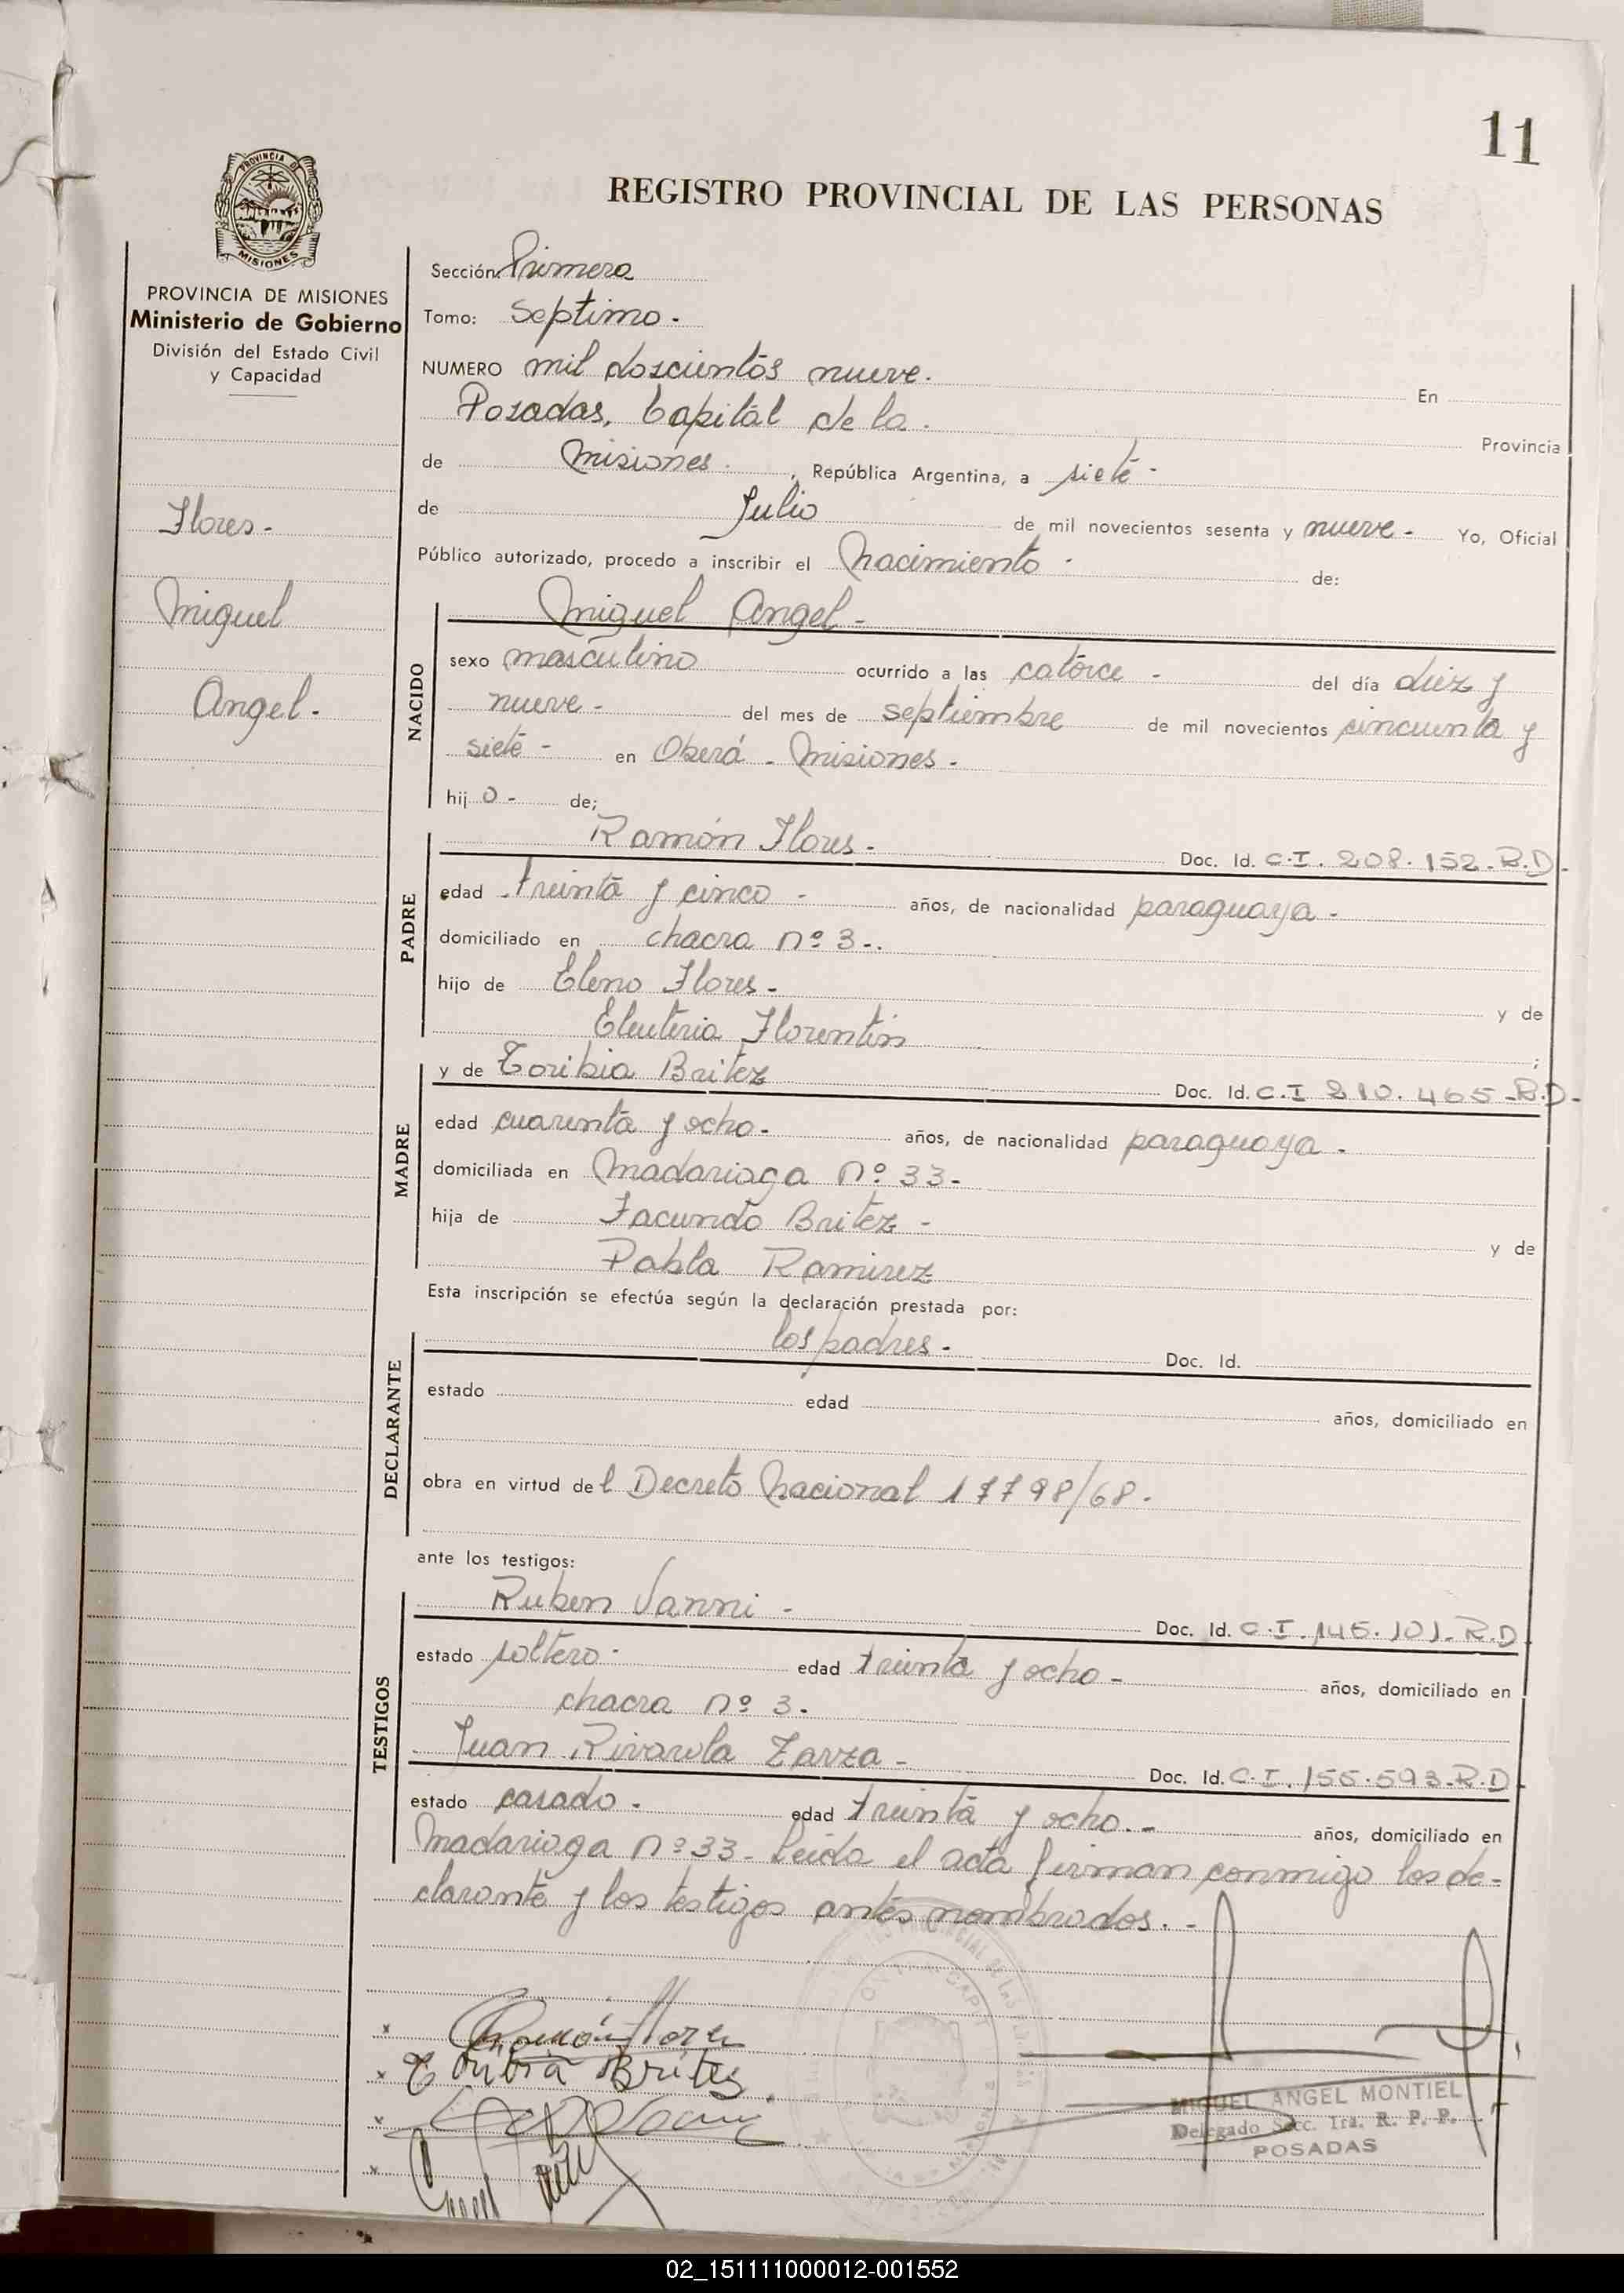 11
PROVINCIA DE
MISIONES
PROVINCIA DE MISIONES
Ministerio de Gobierno
División del Estado Civil
y Capacidad
Flores-
Miguel
Angel.
REGISTRO PROVINCIAL DE LAS PERSONAS
Sección Primera
Tomo: Septimo.
NUMERO mil doscientos nueve. En
Posadas, Capital de la. Provincia
de Misiones., República Argentina, a siete-
de Julio de mil novecientos sesenta y nueve- Yo, Oficial
Público autorizado, procedo a inscribir el Nacimiento- de:
NACIDO
Miguel Angel-
sexo masculino ocurrido a las catorce- del día diez y
nueve- del mes de septiembre de mil novecientos cincuenta y
siete- en Oberá- Misiones-
hij o- de;
PADRE
Ramón Flores- Doc. Id. C.I. 208.152-R.D-
edad treinta y cinco- años, de nacionalidad paraguaya-
domiciliado en chacra nº 3-.
hijo de Eleno Flores- y de
Eleuteria Florentin ;
MADRE
y de Toribia Britez Doc. Id. C.I 210.465-R.D-
edad cuarenta y ocho- años, de nacionalidad paraguaya-
domiciliada en Madariaga nº 33-
hija de Facundo Britez- y de
Pabla Ramirez
Esta inscripción se efectúa según la declaración prestada por:
DECLARANTE
los padres- Doc. Id.
estado edad años, domiciliado en
obra en virtud de l Decreto Nacional 17798/68.
ante los testigos:
TESTIGOS
Ruben Vanni- Doc. Id. C.I. 145.101-R.D
estado soltero- edad treinta y ocho- años, domiciliado en
chacra nº 3.
Juan Rivarola Zarza- Doc. Id. C.I. 155.593-R.D
estado casado- edad treinta y ocho.- años, domiciliado en
Madariaga nº 33- Leida el acta firman conmigo los de-
clarante y los testigos antes nombrados.-
Ramón Flores
Toribia Brites
MIGUEL ANGEL MONTIEL
Delegado Secc. 1ra. R. P. P.
POSADAS
02_151111000012-001552